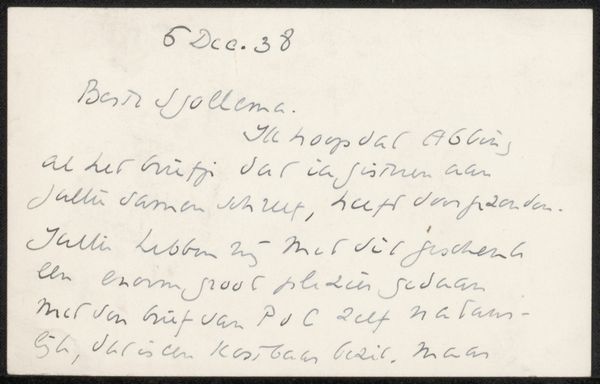 6 Dec. 38
Beste Sjollema.
Ik hoop dat Abbing
al het briefje dat ik gisteren aan
jullie samen schreef, heeft doorgezonden.
Jullie hebben mij met dit geschenk
een enorm groot plezier gedaan
met den brief van PvC zelf natuur-
lijk, dat is een kostbaar bezit. Maar